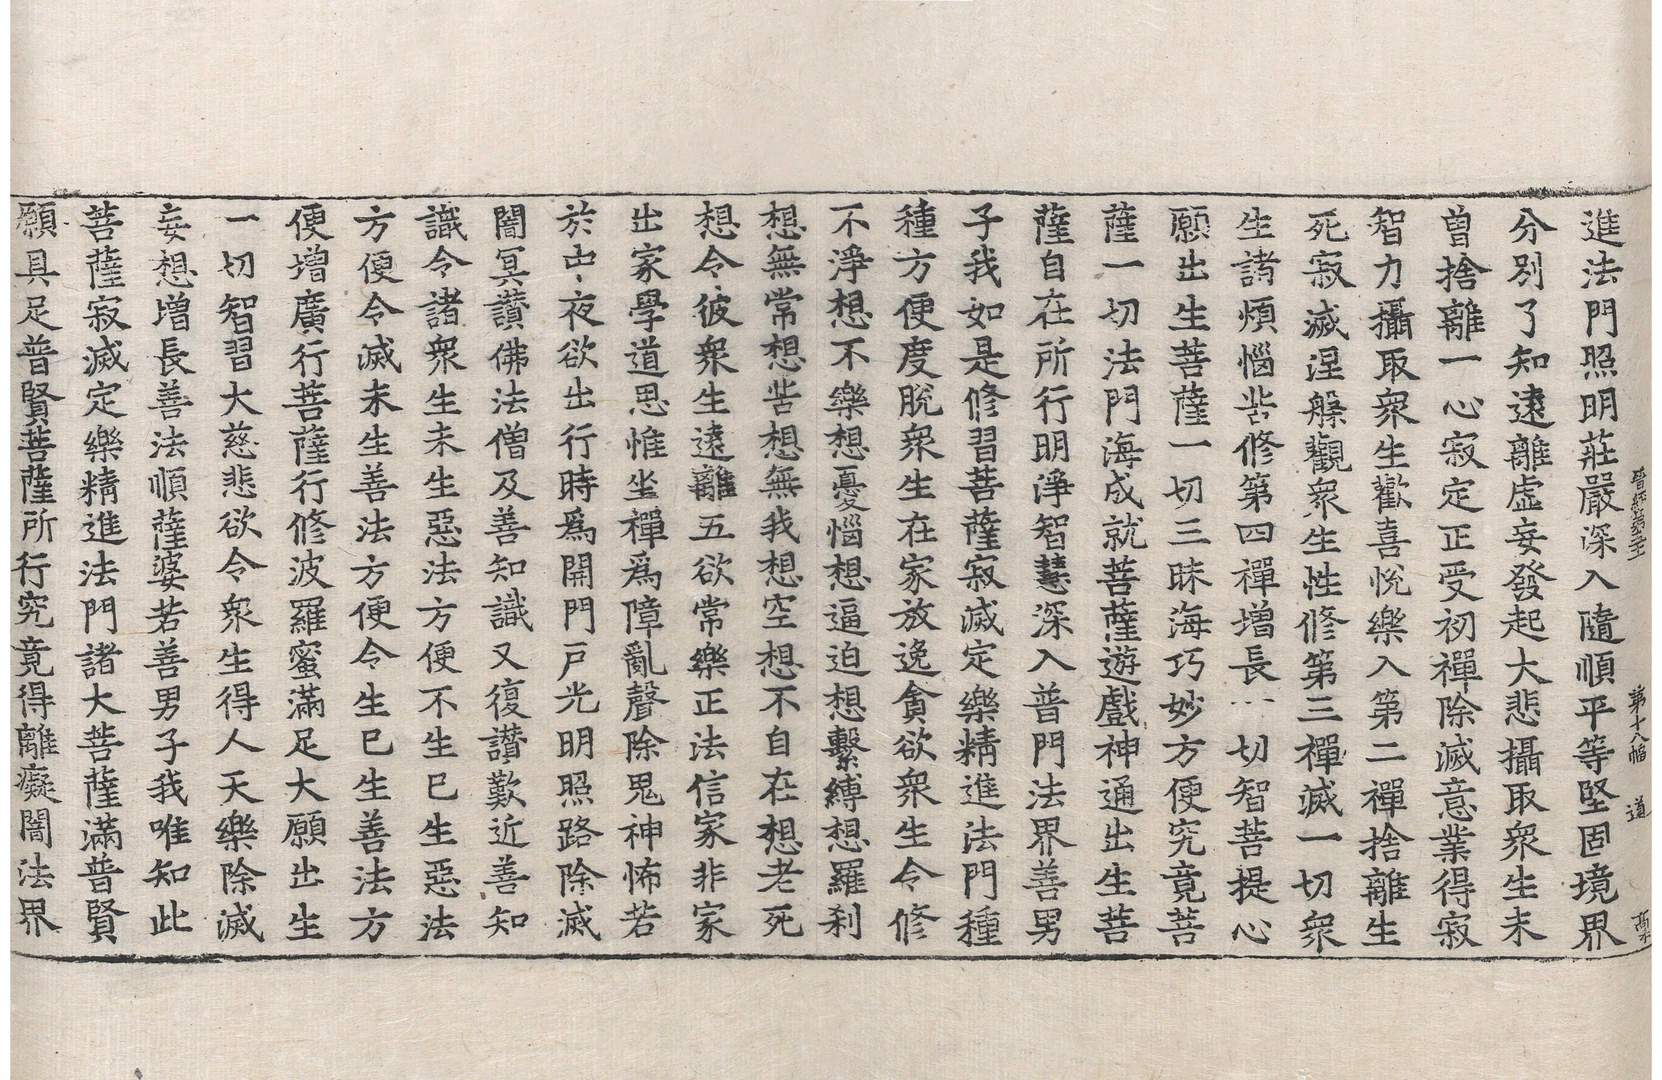 第十八幅 道
進法門照明莊嚴深入隨順平等堅固境界
分別了知遠離虛妄發起大悲攝取衆生未
曾捨離一心寂定正受初禪除滅意業得寂
智力攝取衆生歡喜悅樂入第二禪捨離生
死寂滅涅槃觀衆生性修第三禪滅一切衆
生諸煩惱苦修第四禪增長一切智菩提心
願出生菩薩一切三昧海巧妙方便究竟菩
薩一切法門海成就菩薩遊戲神通出生菩
薩自在所行明淨智慧深入普門法界善男
子我如是修習菩薩寂滅定樂精進法門種
種方便度脫衆生在家放逸貪欲衆生令修
不淨想不樂想憂惱想逼迫想繫縛想羅刹
想無常想苦想無我想空想不自在想老死
想令彼衆生遠離五欲常樂正法信家非家
出家學道思惟坐禪爲障亂聲除鬼神怖若
於中夜欲出行時爲開門戶光明照路除滅
闇冥讚佛法僧及善知識又復讚歎近善知
識令諸衆生未生惡法方便不生已生惡法
方便令滅未生善法方便令生已生善法方
便增廣行菩薩行修波羅蜜滿足大願出生
一切智習大慈悲欲令衆生得人天樂除滅
妄想增長善法順薩婆若善男子我唯知此
菩薩寂滅定樂精進法門諸大菩薩滿普賢
願具足普賢菩薩所行究竟得離癡闇法界